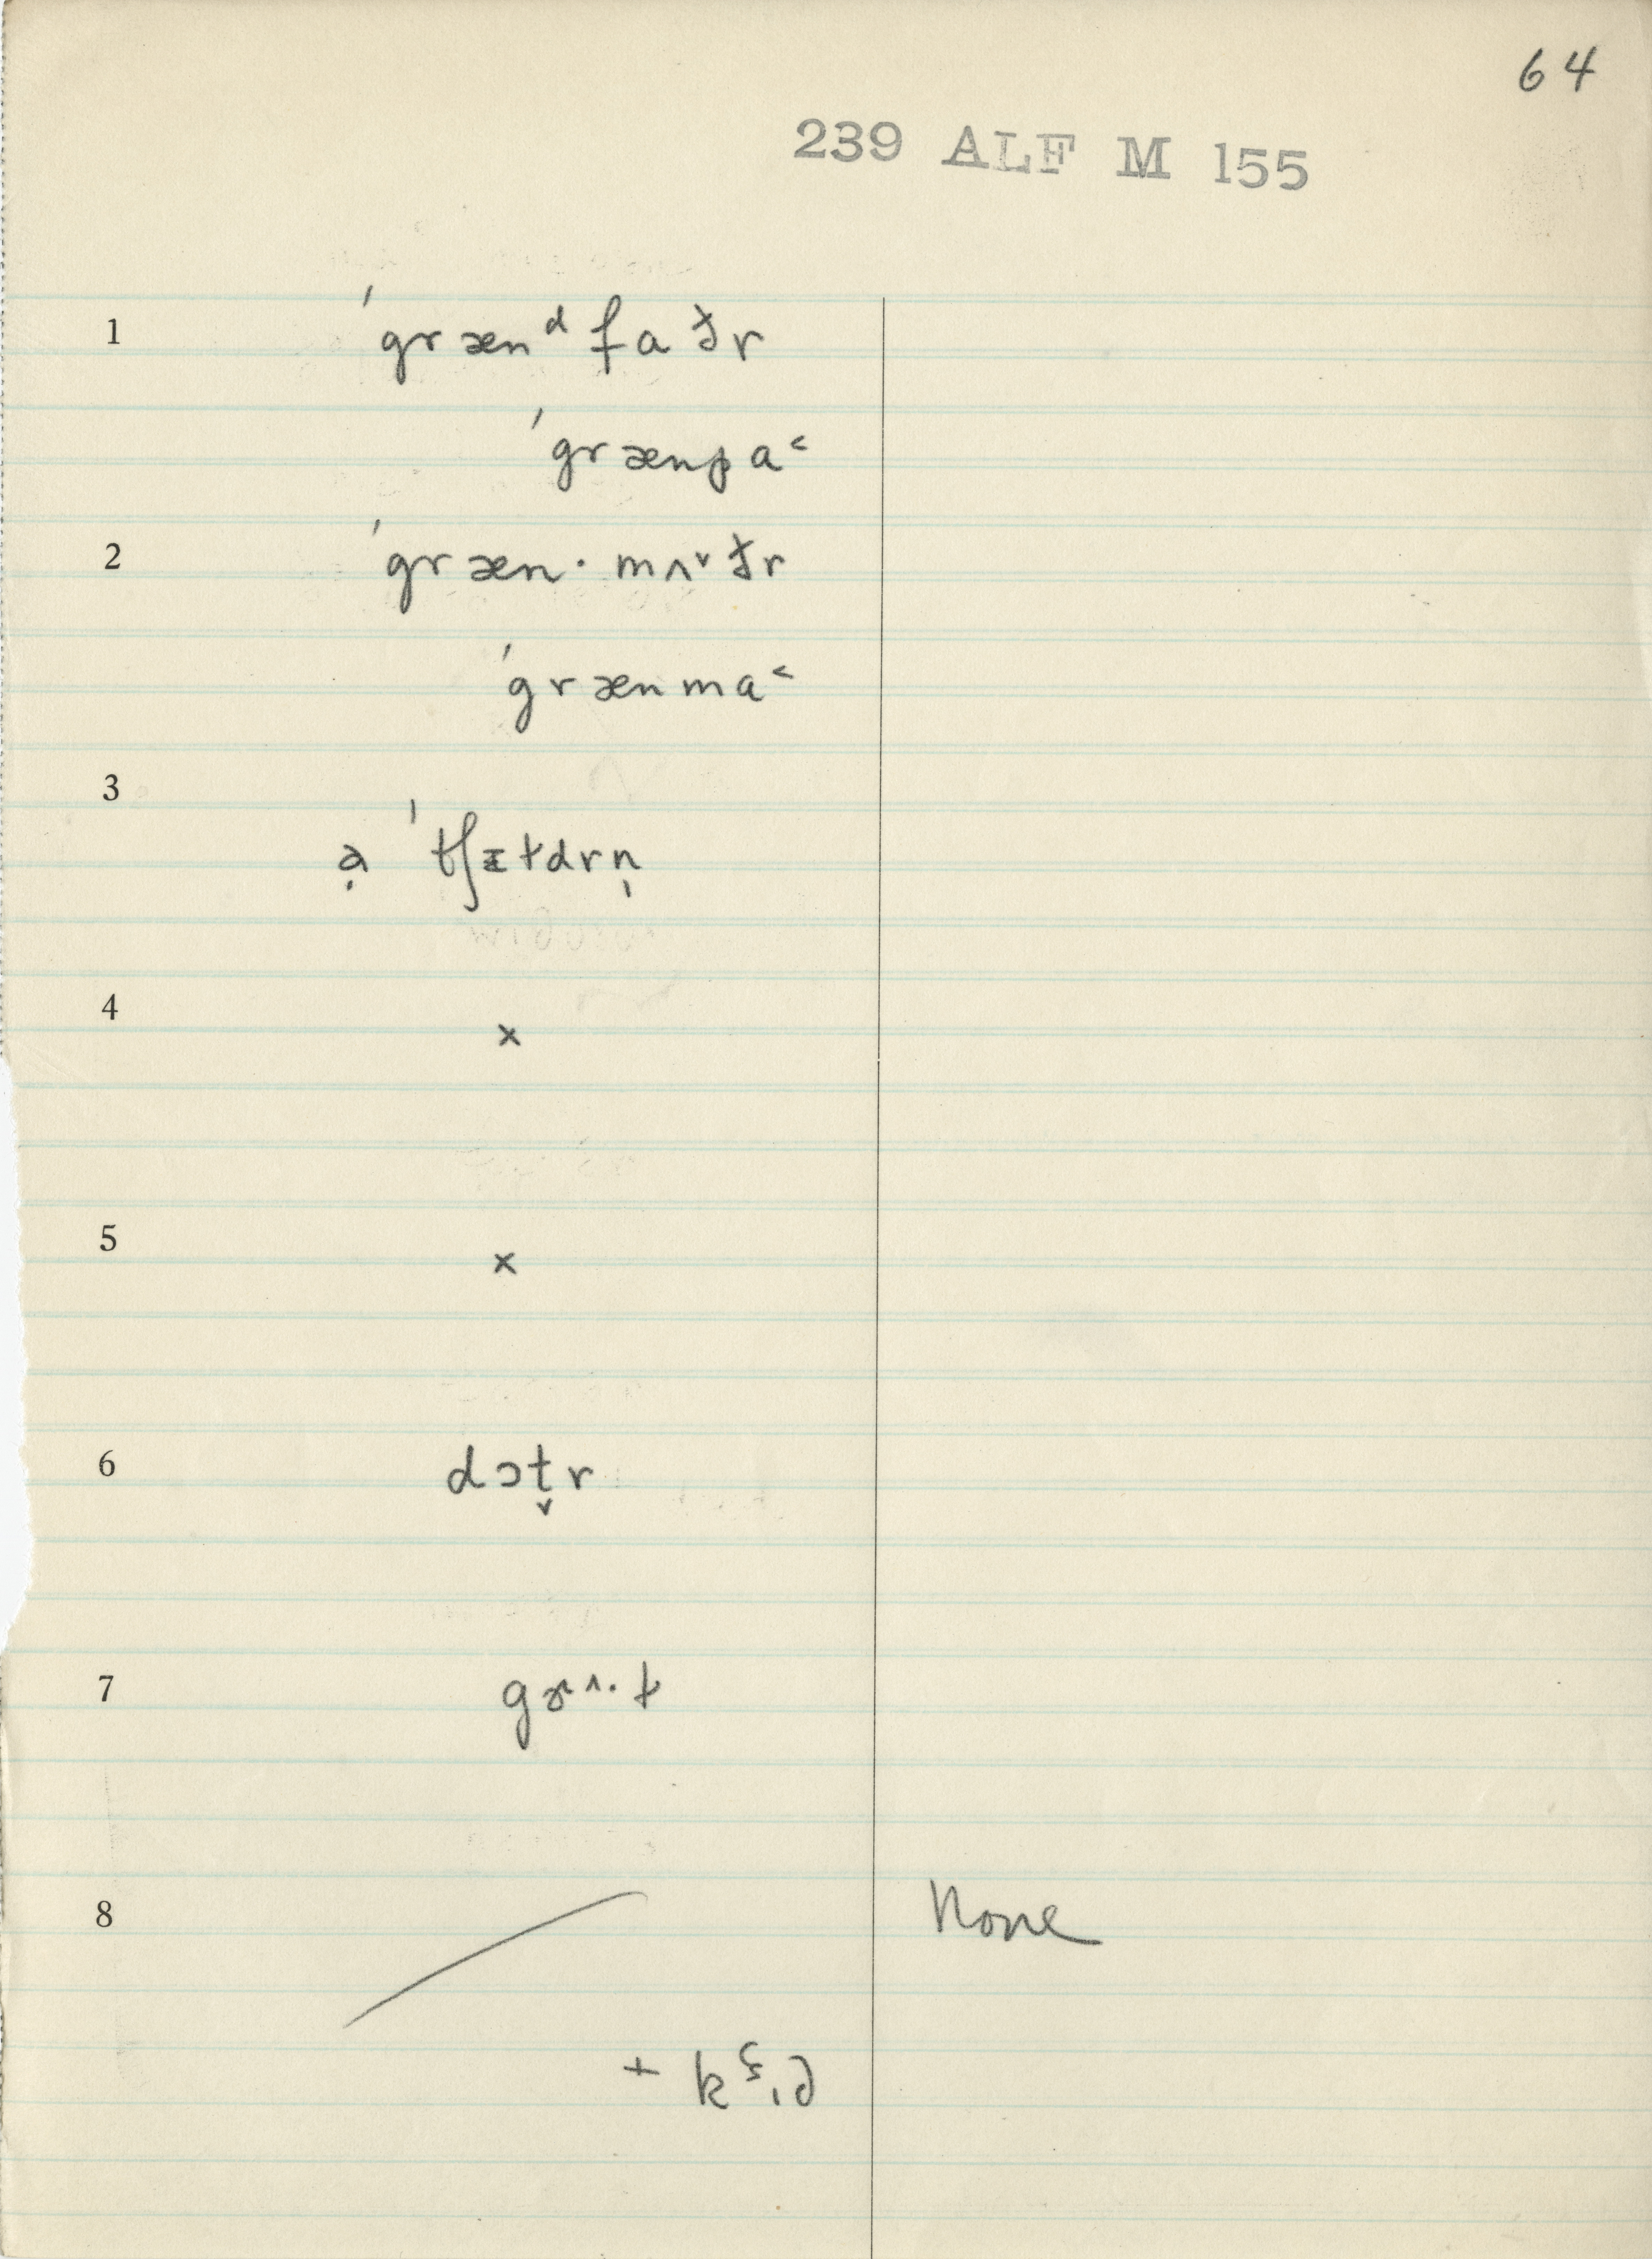 64
239 ALF M 155
1 ˈgrænᵈfaðr
ˈgrænpa˂
2 ˈgræn·mʌ˅ðr
ˈgrænma˂
3 ə̣ ˈtʃɪldrn̩
4 ×
5 ×
6 dɔt̬r
7 gɚ˄·l
8 None